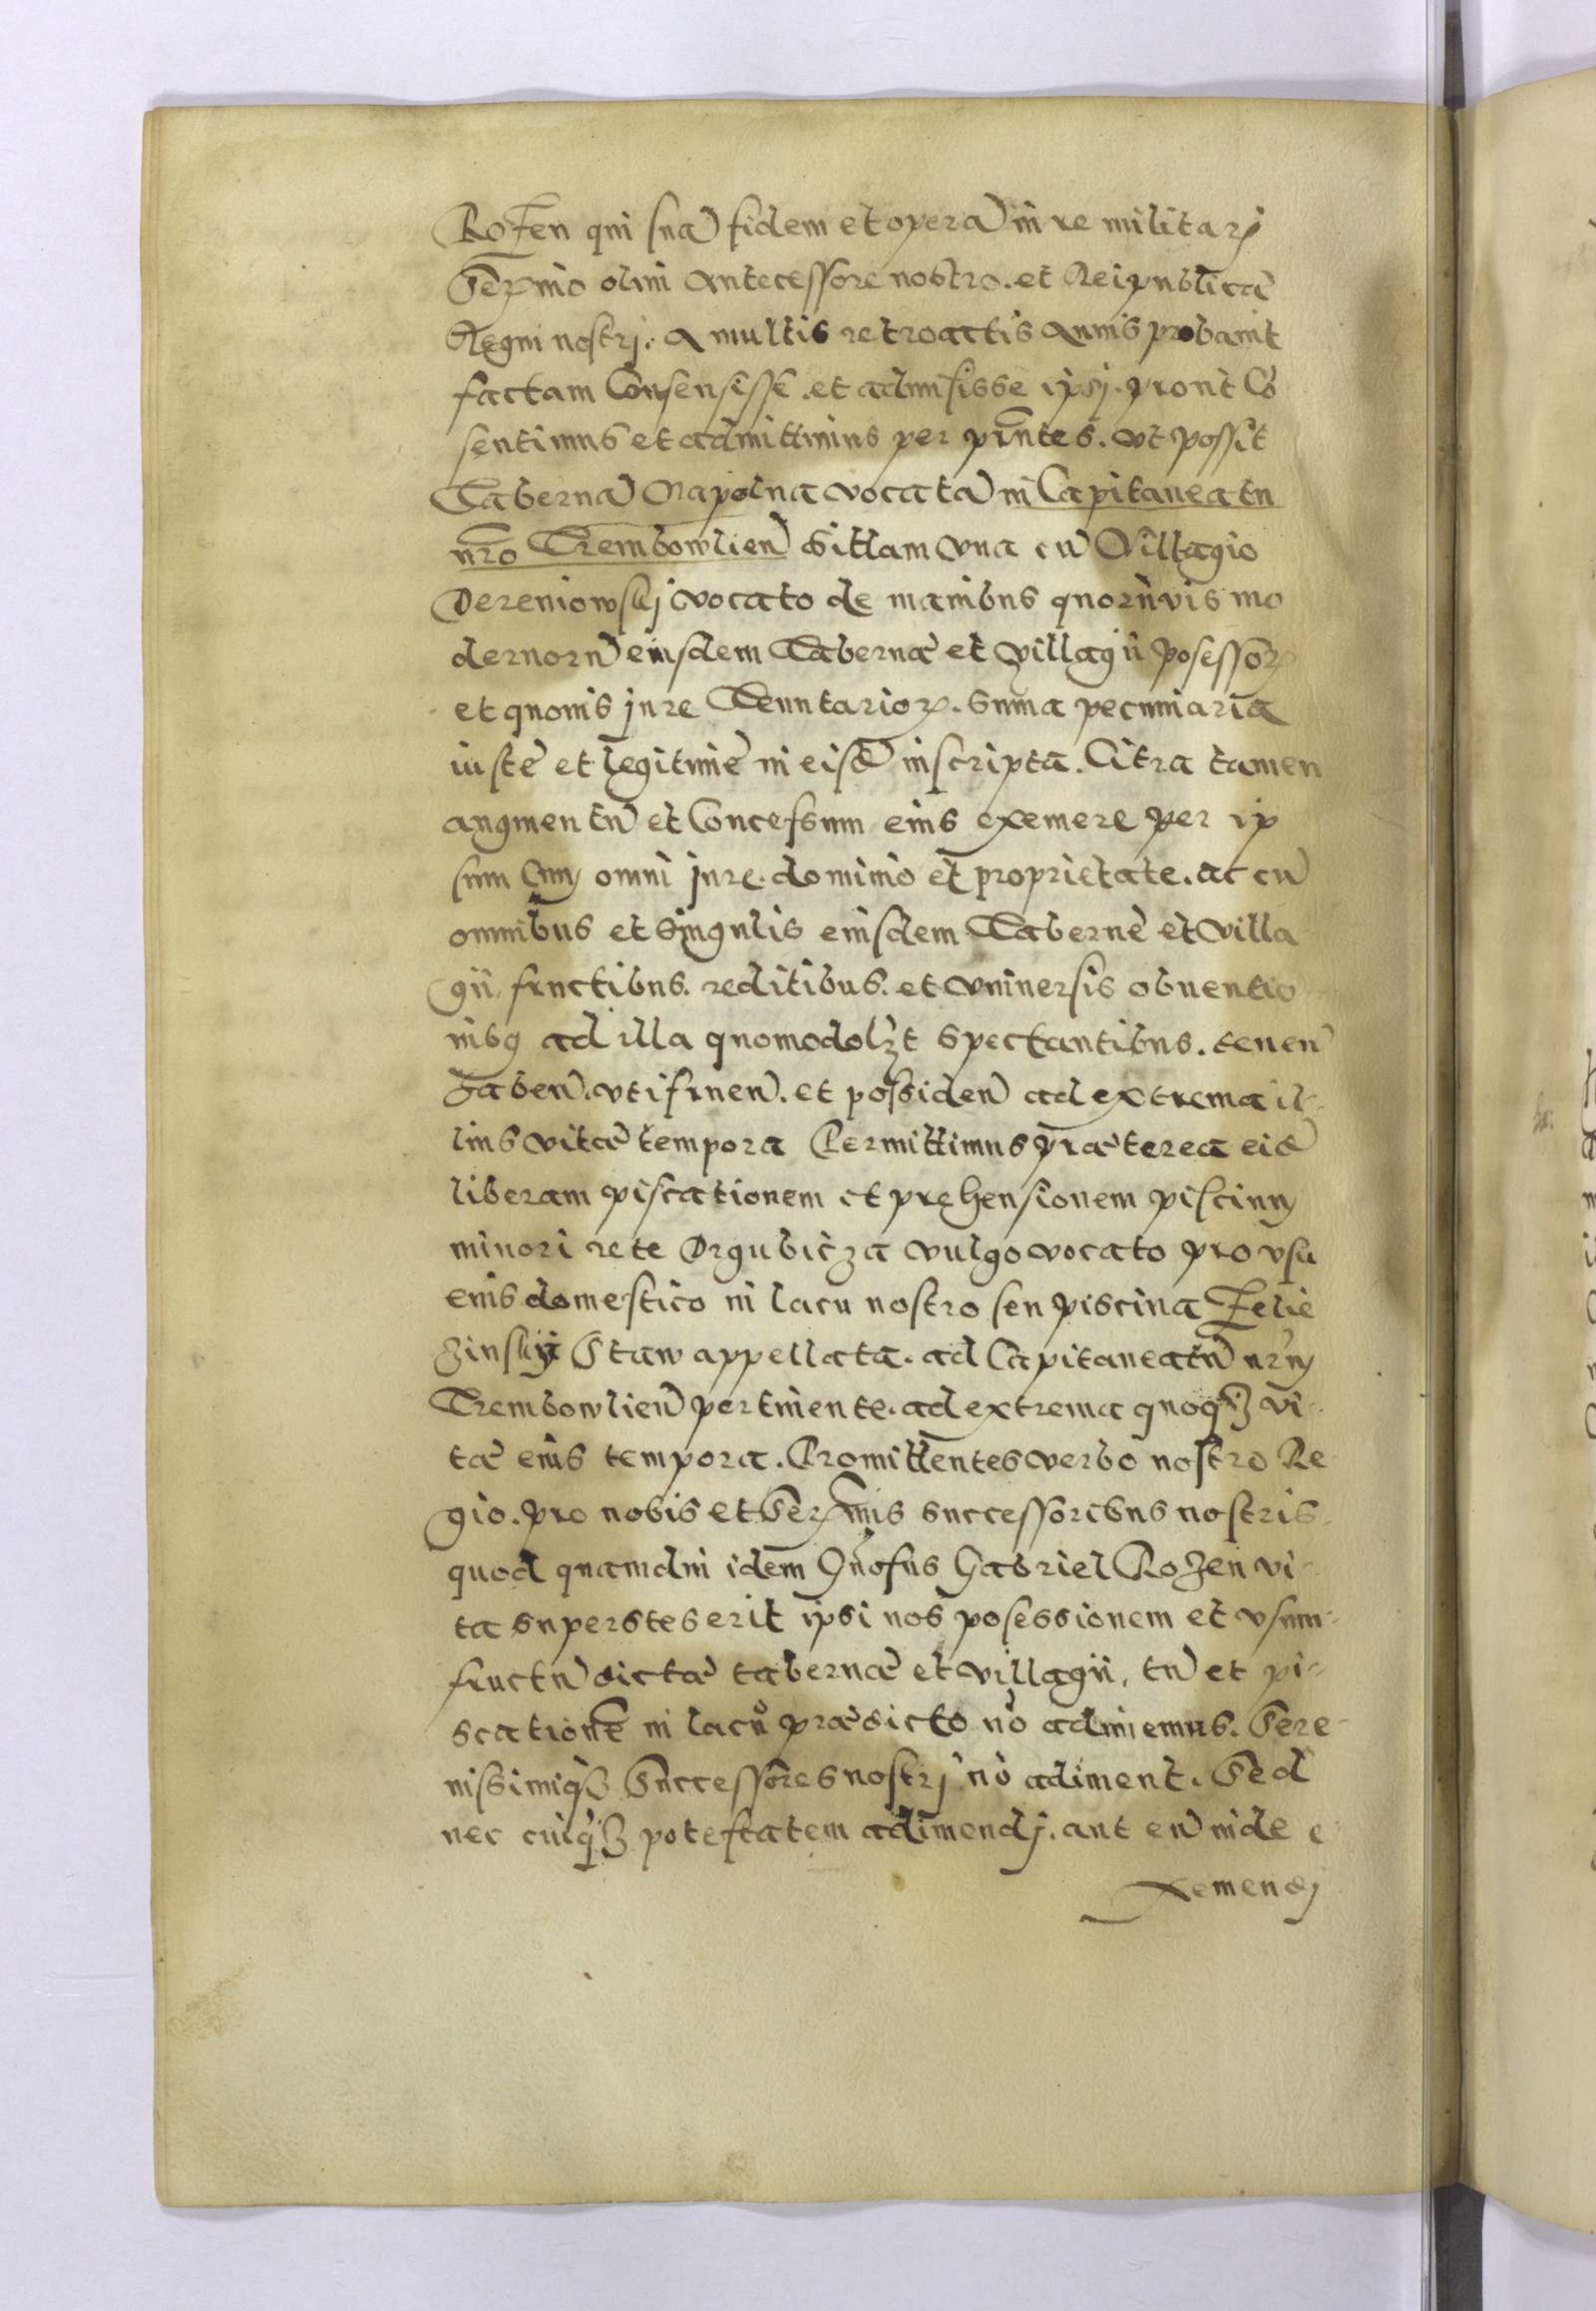 Rozen qui suā fidem et operā in re militarj
Serᵐᵒ olim Antecessore nostro. et Reipublicæ
Regni nostrj. A multis retroactis Annis probavit
factam Consensisse. et admisisse ipsj. prout Cō
sentimus et admittimus per pn̄tes. vt possit
Tabernā Napolna vocatā in Capitaneatu
nr̄o Trembowlien̄ Sittam vna cū Villagio
Dereniowskj vocato de manibus quorūvis mo
dernorū eiusdem Tabernæ et villagii possessoꝝ
et quovis jure Tenutarioꝝ. suma pecuniaria
iustè et legitimè in eisdē inscriptā. Citra tamen
augmentū et Concessum eius exemere per ip
sum Cum omni jure. dominio et proprietate. ac cū
omnibus et Singulis eiusdem Tabernè et Villa
gii fructibus. reditibus. et vniuersis obuentio
nibꝗ ad illa quomodolꝫt Spectantibus. tenen̄
haben̄. vtifruen̄. et possiden̄ ad extrema il-
lius vitæ tempora Permittimus præterea eidē
liberam piscationem et pręhensionem piscium
minori rete Drgubicza vulgo vocato pro vsu
eius domestico in lacu nostro seu piscina Zelie
zinskÿ Staw appellata. ad Capitaneatū nr̄m
Trembowlien̄ pertinente. ad extrema quoqꝫ vi-
tæ eius tempora. Promittentes verbo nostro Re
gio. pro nobis et Serᵐⁱˢ successoribus nostris.
quod quamdiu idem Gn̄osus Gabriel Rozen vi-
ta superstes erit ipsi nos posessionem et vsum-
fructū dictæ tabernæ et villagii, tū et pi-
scationē in laců prædicto nō adimemus. Sere-
nissimiqꝫ Successores nostrj nō adiment. Sed
nec cuiqꝫ potestatem adimendj. aut eū inde e
xemendj